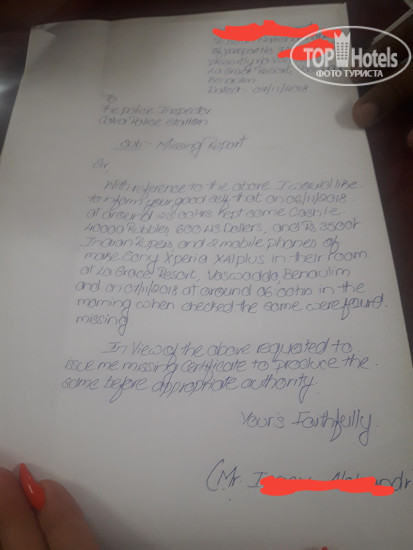 TOP Hotels
ФОТО ТУРИСТА
La Grace Resort,
Benaulim
Dated: 07/11/2018
To
The police Inspector
Colva Police Station
Sub:- Missing Report
Sir,
With reference to the above I would like
to inform your good self that on 06/11/2018
at around hrs kept some Cash i.e
40000 Rubbles, 600 US Dollers, and Rs. 3500/-
Indian Rupees, and 2 mobile phones of
make Sony Xperia XA1 plus in their room
at La Grace Resort, Vaswaddo, Benaulim
and on 07/11/2018 at around 06.00hrs in the
morning when checked the same were found
missing
In View of the above requested to
issue me missing Certificate to produce the
same before appropriate authority.
Your's Faithfully.
(Mr.